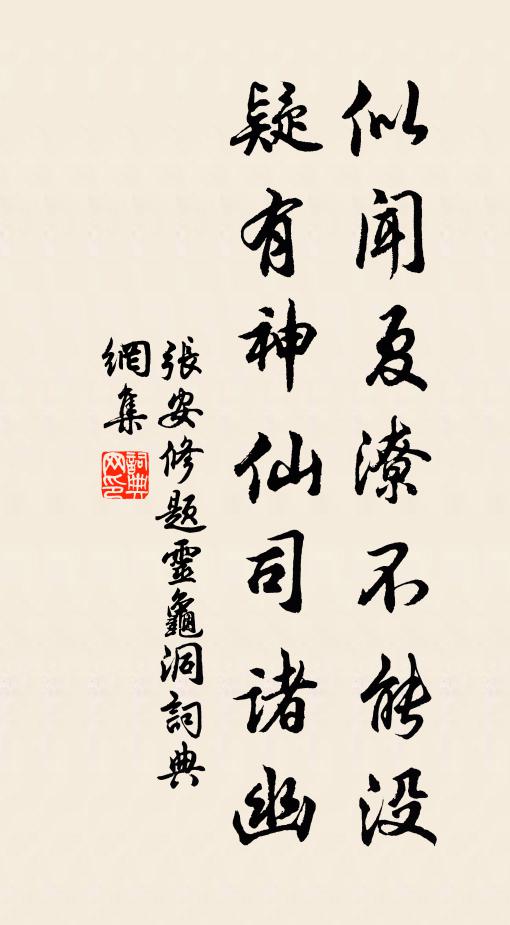 似闻夏潦不能没
疑有神仙司诸幽
張安修题靈龜洞詞典
網集
詞典网印